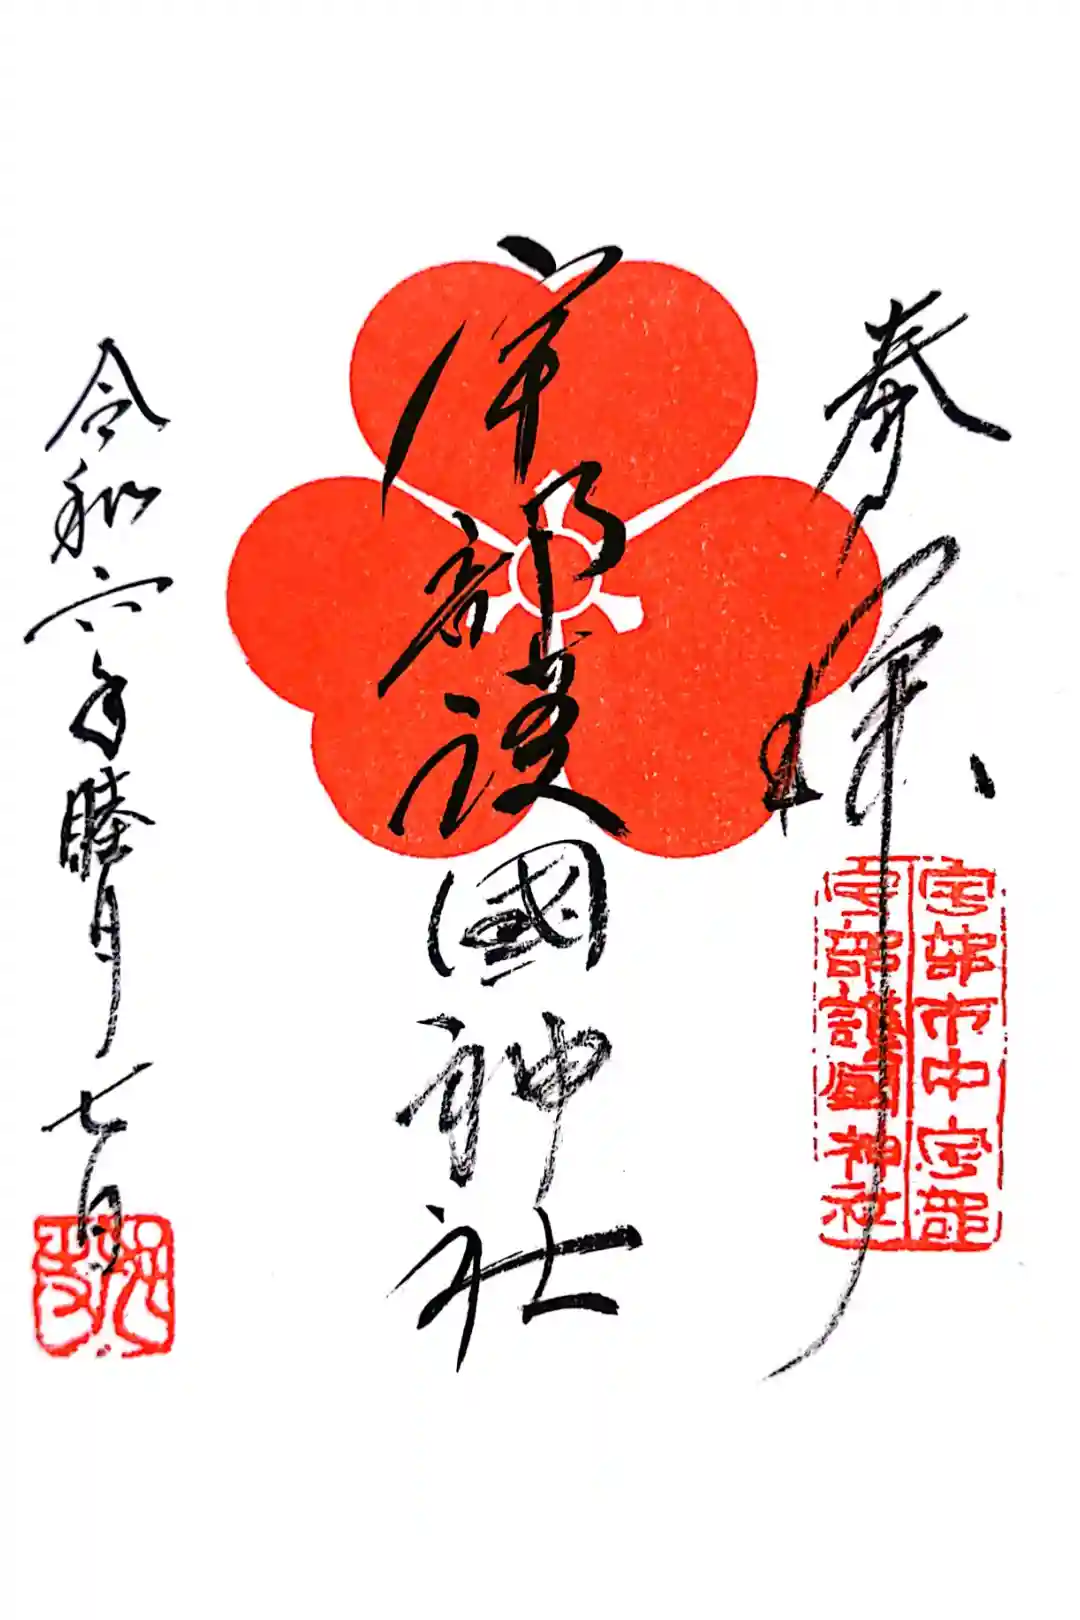 奉拝
宇部市中宇部
宇部護國神社
宇部護國神社
令和六年睦月七日